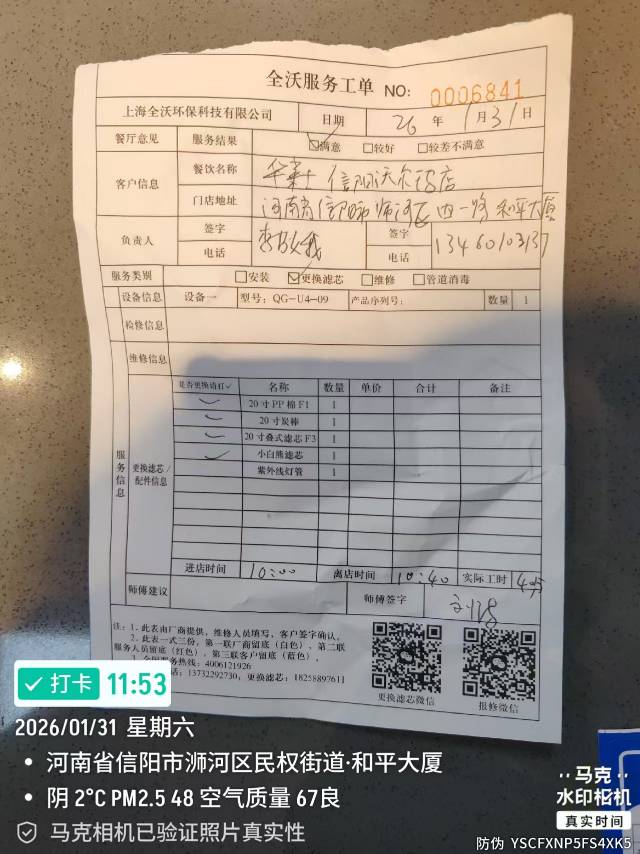 全沃服务工单 NO: 0006841
上海全沃环保科技有限公司 日期 26 年 1 月 31 日
餐厅意见 服务结果 ☑满意 □较好 □较差不满意
客户信息 餐饮名称 华莱士 信阳沃尔玛店
门店地址 河南省信阳市浉河区四一路和平大厦
负责人 签字 签字
电话 电话 13460103137
服务类别 □安装 ☑更换滤芯 □维修 □管道消毒
设备信息 设备一 型号: QG-U4-09 产品序列号: 数量 1
检修信息
维修信息
服务信息 更换滤芯/配件信息 是否更换请打✓ 名称 数量 单价 合计 备注
✓ 20寸PP棉F1 1
✓ 20寸炭棒 1
✓ 20寸叠式滤芯F3 1
✓ 小白熊滤芯 1
紫外线灯管 1
进店时间 10:00 离店时间 10:40 实际工时 4分
师傅建议 师傅签字
注: 1. 此表由厂商提供, 维修人员填写, 客户签字确认。
2. 此表一式三份, 第一联厂商留底(白色), 第二联
服务人员留底(红色), 第三联客户留底(蓝色),
3. 全国服务热线: 4006121926
13732292730, 更换滤芯: 18258897611
更换滤芯微信 报修微信
打卡 11:53
2026/01/31 星期六
• 河南省信阳市浉河区民权街道·和平大厦
• 阴 2°C PM2.5 48 空气质量 67良
马克相机已验证照片真实性
马克
水印相机
真实时间
防伪 YSCFXNP5FS4XK5